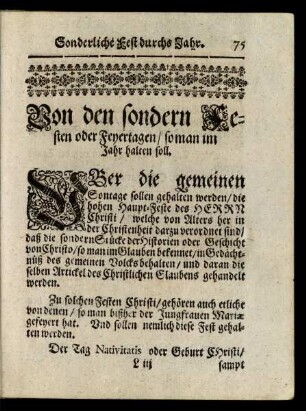 Sonderliche Fest durchs Jahr. 75
Von den sondern Fe-
sten oder Feyertagen / so man im
Jahr halten soll.
UBer die gemeinen
Sontage sollen gehalten werden / die
hohen Haupt-Feste des HERRN
Christi / welche von Alters her in
der Christenheit darzu verordnet sind /
daß die sondern Stücke der Historien oder Geschicht
von Christo / so man im Glauben bekennet / in Gedächt-
nüß des gemeinen Volcks behalten / und daran die
selben Artickel des Christlichen Glaubens gehandelt
werden.
Zu solchen Festen Christi / gehören auch etliche
von denen / so man bißher der Jungfrauen Mariæ
gefeyert hat. Und sollen nemlich diese Fest gehal-
ten werden.
Der Tag Nativitatis oder Geburt CHristi /
L iij sampt